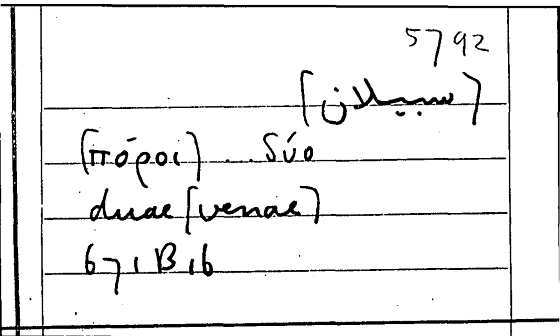 5792
[سبيلان]
[πόροι] .. δύο
duae [venae]
671 B 16